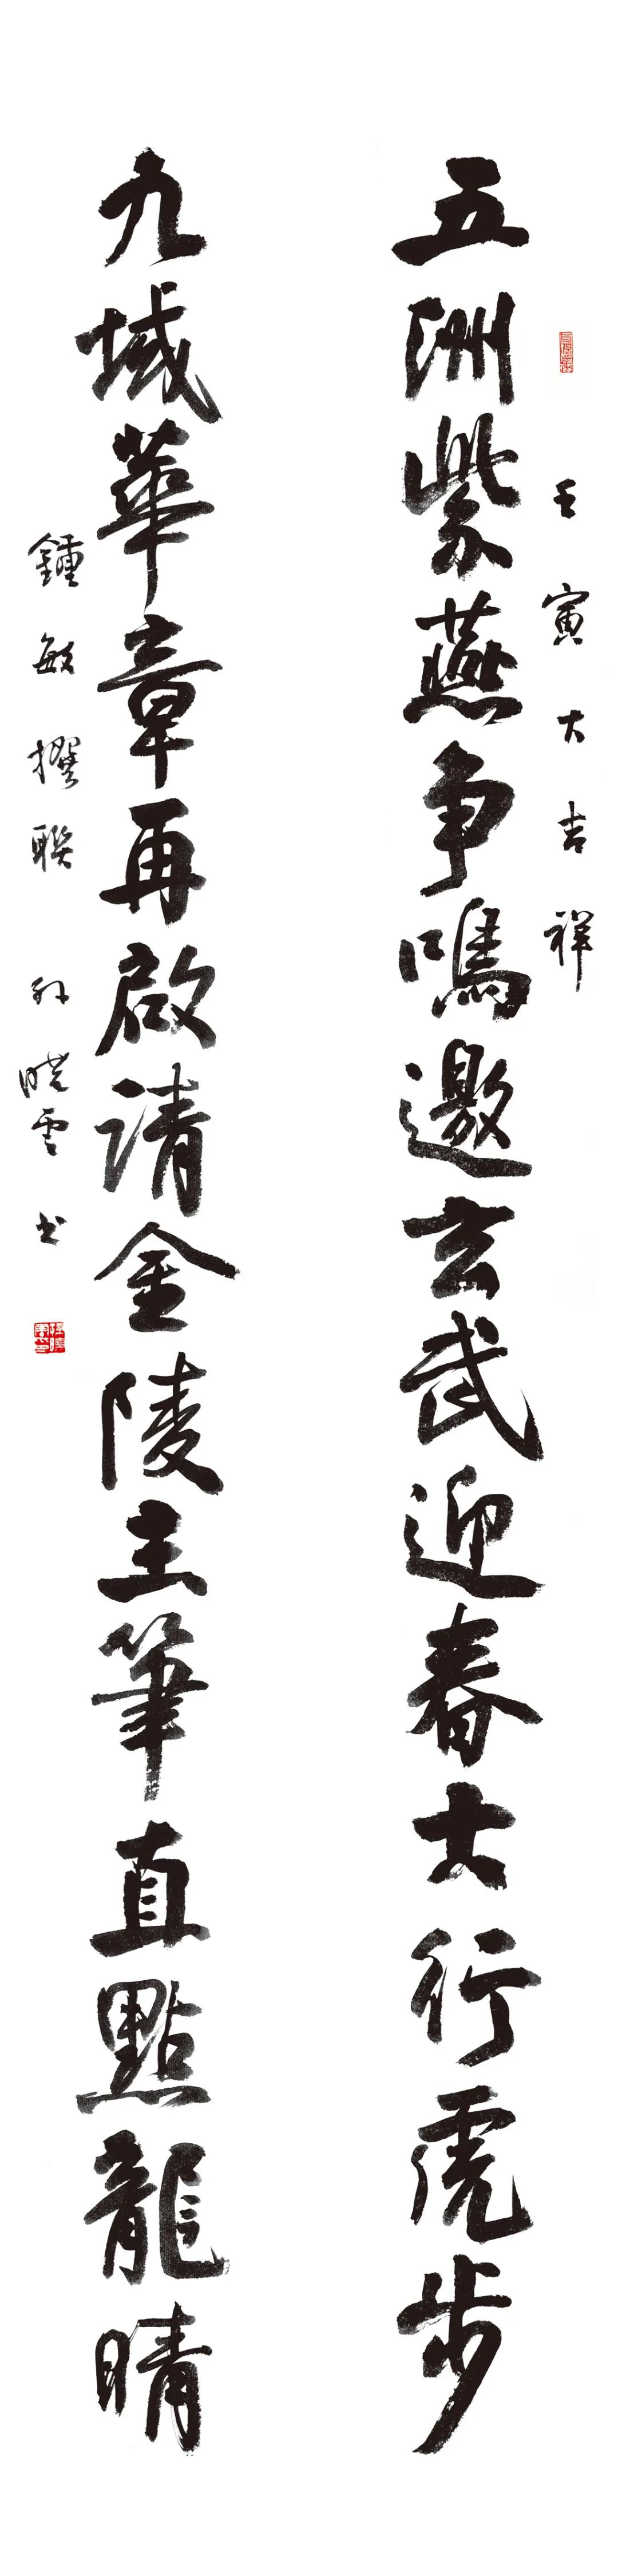 壬寅大吉祥
五洲紫燕争鳴邀玄武迎春大行虎步
九域華章再啟請金陵主筆直點龍睛
鍾敏撰聯 孙晓云书